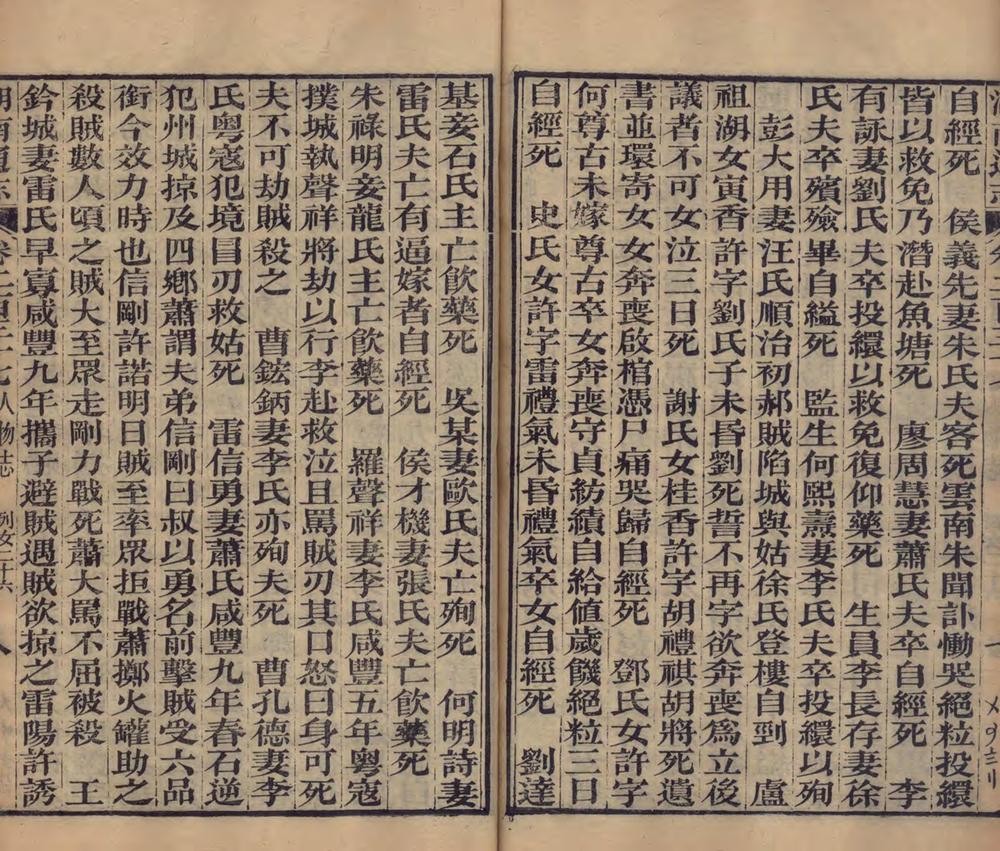 自經死　侯義先妻朱氏夫客死雲南朱聞訃慟哭絕粒投繯
皆以救免乃潛赴魚塘死　廖周慧妻蕭氏夫卒自經死　李
有詠妻劉氏夫卒投繯以救免復仰藥死　生員李長存妻徐
氏夫卒殯殮畢自縊死　監生何熙燾妻李氏夫卒投繯以殉
彭大用妻汪氏順治初郝賊陷城與姑徐氏登樓自剄　盧
祖湖女寅香許字劉氏子未昏劉死誓不再字欲奔喪爲立後
議者不可女泣三日死　謝氏女桂香許字胡禮祺胡將死遺
書並環寄女女奔喪啟棺憑尸痛哭歸自經死　鄧氏女許字
何尊古未嫁尊古卒女奔喪守貞紡績自給値歲饑絕粒三日
自經死　史氏女許字雷禮氣未昏禮氣卒女自經死　劉達
基妾石氏主亡飮藥死　吳某妻歐氏夫亡殉死　何明詩妻
雷氏夫亡有逼嫁者自經死　侯才機妻張氏夫亡飮藥死
朱祿明妾龍氏主亡飮藥死　羅聲祥妻李氏咸豐五年粵寇
撲城執聲祥將劫以行李赴救泣且罵賊刃其口怒曰身可死
夫不可劫賊殺之　曹鋐鈵妻李氏亦殉夫死　曹孔德妻李
氏粵寇犯境冒刃救姑死　雷信勇妻蕭氏咸豐九年春石逆
犯州城掠及四鄉蕭謂夫弟信剛曰叔以勇名前擊賊受六品
銜今效力時也信剛許諾明日賊至率眾拒戰蕭擲火罐助之
殺賊數人頃之賊大至眾走剛力戰死蕭大罵不屈被殺　王
鈐城妻雷氏早寡咸豐九年攜子避賊遇賊欲掠之雷陽許誘
湖南通志　卷二百二十七人物志　列女二十六　八